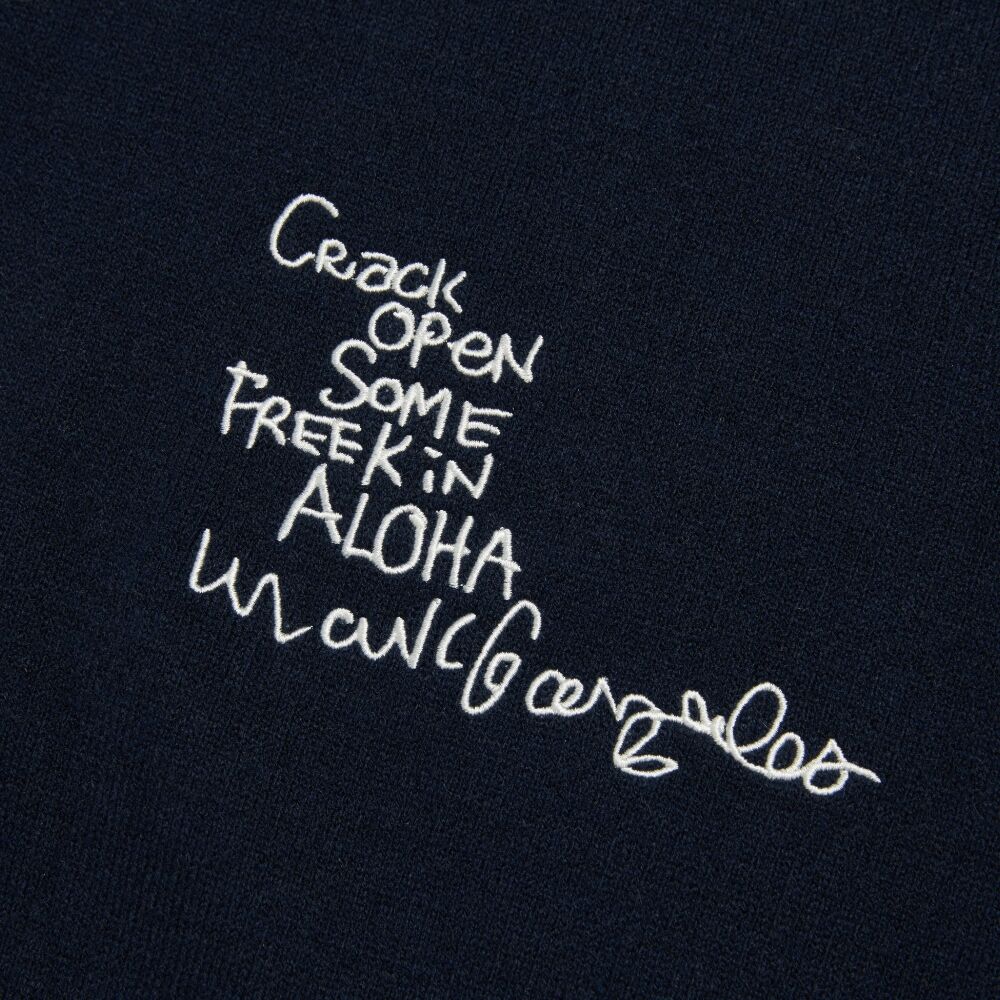 Crack
OPeN
SOME
FREEKiN
ALOHA
Mark Gonzales